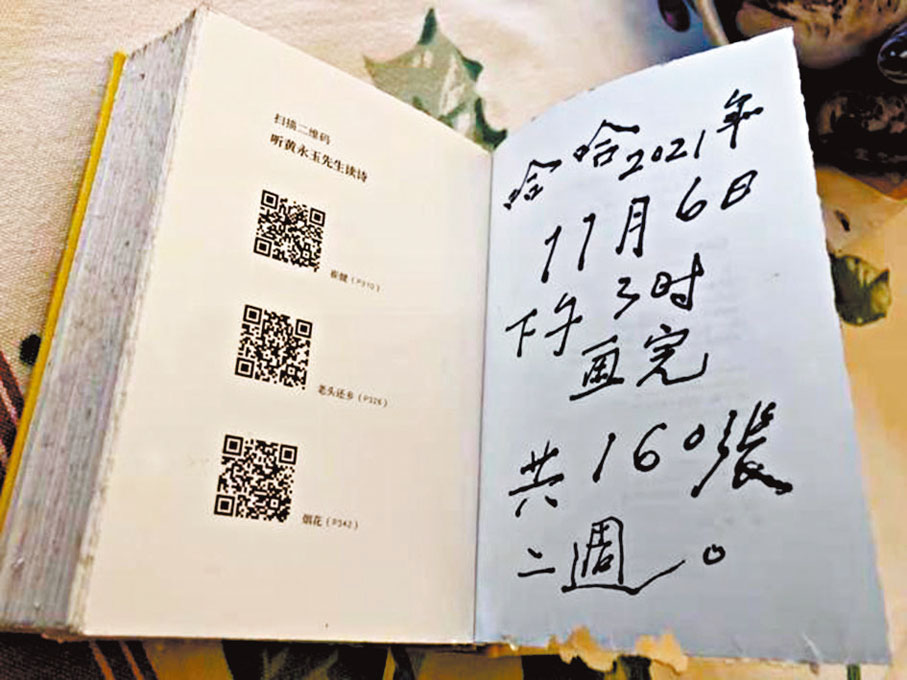 扫描二维码
听黄永玉先生读诗
崔健（P310）
老头还乡（P326）
烟花（P342）
哈哈2021年
11月6日
下午3时
画完
共160張
二週。